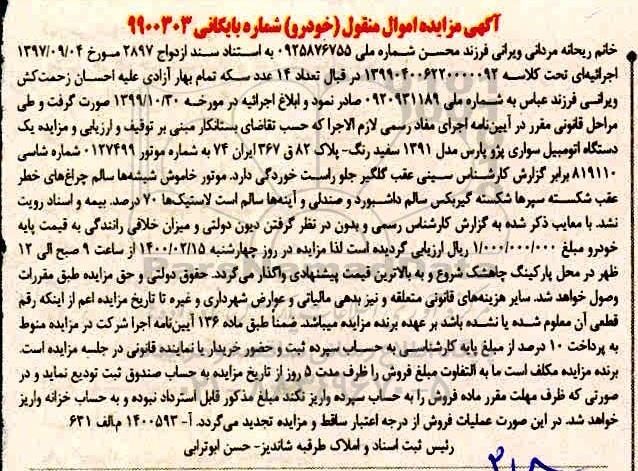 آگهی مزایده اموال منقول (خودرو) شماره بایگانی ۹۹۰۰۳۰۳
خانم ریحانه مردانی ویرانی فرزند محسن شماره ملی ۰۹۲۵۸۷۶۷۵۵ به استناد سند ازدواج ۲۸۹۷ مورخ ۱۳۹۷/۰۹/۰۴
اجرائیه‌ای تحت کلاسه ۱۳۹۹۰۴۰۰۶۲۲۰۰۰۰۰۹۲ در قبال تعداد ۱۴ عدد سکه تمام بهار آزادی علیه احسان زحمت‌کش
ویرانی فرزند عباس به شماره ملی ۰۹۲۰۹۳۱۱۸۹ صادر نمود و ابلاغ اجرائیه در مورخه ۱۳۹۹/۱۰/۳۰ صورت گرفت و طی
مراحل قانونی مقرر در آیین‌نامه اجرای مفاد رسمی لازم الاجرا که حسب تقاضای بستانکار مبنی بر توقیف و ارزیابی و مزایده یک
دستگاه اتومبیل سواری پژو پارس مدل ۱۳۹۱ سفید رنگ- پلاک ۸۲ ق ۳۶۷ ایران ۷۴ به شماره موتور ۰۱۲۷۴۹۹ شماره شاسی
۸۱۹۱۱۰ برابر گزارش کارشناس سینی عقب گلگیر جلو راست خوردگی دارد. موتور خاموش شیشه‌ها سالم چراغ‌های خطر
عقب شکسته سپرها شکسته گیربکس سالم داشبورد و صندلی و آینه‌ها سالم است لاستیک‌ها ۷۰ درصد. بیمه و اسناد رویت
نشد. با معایب ذکر شده به گزارش کارشناس رسمی و بدون در نظر گرفتن دیون دولتی و میزان خلافی رانندگی به قیمت پایه
خودرو مبلغ ۱/۰۰۰/۰۰۰/۰۰۰ ریال ارزیابی گردیده است لذا مزایده در روز چهارشنبه ۱۴۰۰/۰۲/۱۵ از ساعت ۹ صبح الی ۱۲
ظهر در محل پارکینگ چاهشک شروع و به بالاترین قیمت پیشنهادی واگذار می‌گردد. حقوق دولتی و حق مزایده طبق مقررات
وصول خواهد شد. سایر هزینه‌های قانونی متعلقه و نیز بدهی مالیاتی و عوارض شهرداری و غیره تا تاریخ مزایده اعم از اینکه رقم
قطعی آن معلوم شده یا نشده باشد بر عهده برنده مزایده میباشد. ضمناً طبق ماده ۱۳۶ آیین‌نامه اجرا شرکت در مزایده منوط
به پرداخت ۱۰ درصد از مبلغ پایه کارشناسی به حساب سپرده ثبت و حضور خریدار یا نماینده قانونی در جلسه مزایده است.
برنده مزایده مکلف است ما به التفاوت مبلغ فروش را ظرف مدت ۵ روز از تاریخ مزایده به حساب صندوق ثبت تودیع نماید و در
صورتی که ظرف مهلت مقرر ماده فروش را به حساب سپرده واریز نکند مبلغ مذکور قابل استرداد نبوده و به حساب خزانه واریز
خواهد شد. در این صورت عملیات فروش از درجه اعتبار ساقط و مزایده تجدید می‌گردد. آ- ۱۴۰۰۵۹۳ م.الف ۶۳۱
رئیس ثبت اسناد و املاک طرقبه شاندیز- حسن ابوترابی